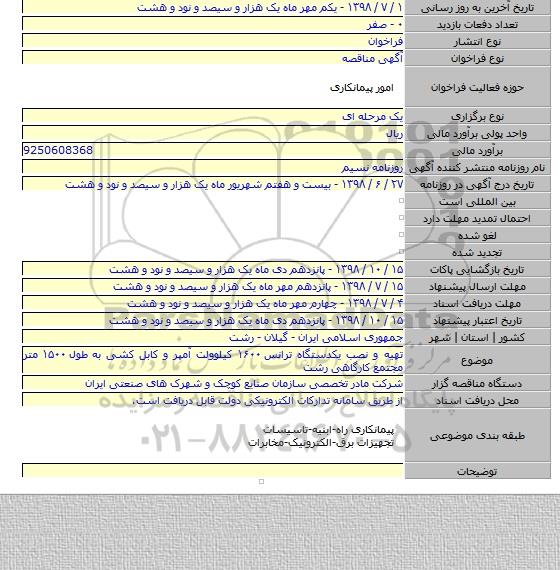 تاریخ آخرین به روز رسانی ۱ / ۷ / ۱۳۹۸ - یکم مهر ماه یک هزار و سیصد و نود و هشت
تعداد دفعات بازدید ۰ - صفر
نوع انتشار فراخوان
نوع فراخوان آگهی مناقصه
حوزه فعالیت فراخوان امور پیمانکاری
نوع برگزاری یک مرحله ای
واحد پولی برآورد مالی ریال
برآورد مالی 9250608368
نام روزنامه منتشر کننده آگهی روزنامه نسیم
تاریخ درج آگهی در روزنامه ۲۷ / ۶ / ۱۳۹۸ - بیست و هفتم شهریور ماه یک هزار و سیصد و نود و هشت
بین المللی است
احتمال تمدید مهلت دارد
لغو شده
تجدید شده
تاریخ بازگشایی پاکات ۱۵ / ۱۰ / ۱۳۹۸ - پانزدهم دی ماه یک هزار و سیصد و نود و هشت
مهلت ارسال پیشنهاد ۱۵ / ۷ / ۱۳۹۸ - پانزدهم مهر ماه یک هزار و سیصد و نود و هشت
مهلت دریافت اسناد ۴ / ۷ / ۱۳۹۸ - چهارم مهر ماه یک هزار و سیصد و نود و هشت
تاریخ اعتبار پیشنهاد ۱۵ / ۱۰ / ۱۳۹۸ - پانزدهم دی ماه یک هزار و سیصد و نود و هشت
کشور | استان | شهر جمهوری اسلامی ایران - گیلان - رشت
موضوع تهیه و نصب یکدستگاه ترانس ۱۶۰۰ کیلوولت آمپر و کابل کشی به طول ۱۵۰۰ متر
مجتمع کارگاهی رشت
دستگاه مناقصه گزار شرکت مادر تخصصی سازمان صنایع کوچک و شهرک های صنعتی ایران
محل دریافت اسناد از طریق سامانه تدارکات الکترونیکی دولت قابل دریافت است.
طبقه بندی موضوعی پیمانکاری راه-ابنیه-تاسیسات
تجهیزات برق-الکترونیک-مخابرات
توضیحات
۰۲۱-۸۸۳۴۹۶۷۰-۵